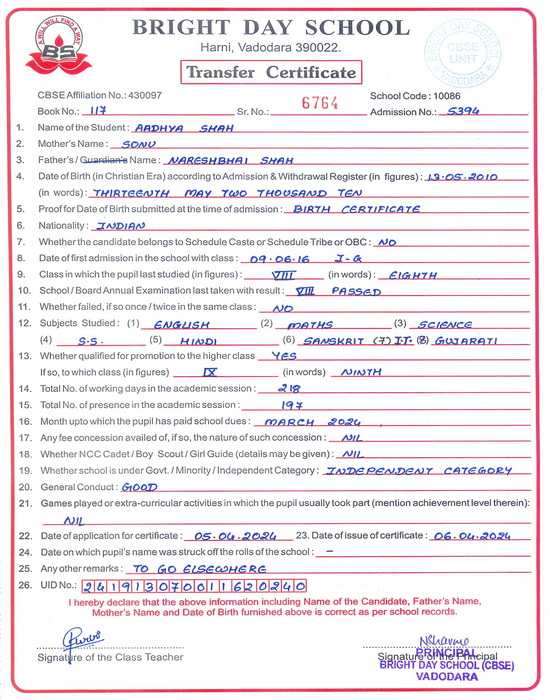 A WILL WILL FIND A WAY
BS
BRIGHT DAY SCHOOL
Harni, Vadodara 390022.
BRIGHT DAY SCHOOL
CBSE
UNIT
VADODARA
Transfer Certificate
CBSE Affiliation No.: 430097 School Code : 10086
Book No.: 117 Sr. No.: 6764 Admission No.: 5394
1. Name of the Student : AADHYA SHAH
2. Mother's Name : SONU
3. Father's / Guardian's Name : NARESHBHAI SHAH
4. Date of Birth (in Christian Era) according to Admission & Withdrawal Register (in figures) : 13.05.2010
(in words) : THIRTEENTH MAY TWO THOUSAND TEN
5. Proof for Date of Birth submitted at the time of admission : BIRTH CERTIFICATE
6. Nationality : INDIAN
7. Whether the candidate belongs to Schedule Caste or Schedule Tribe or OBC : NO
8. Date of first admission in the school with class : 09.06.16 I-G
9. Class in which the pupil last studied (in figures) : VIII (in words) : EIGHTH
10. School / Board Annual Examination last taken with result : VIII PASSED
11. Whether failed, if so once / twice in the same class : NO
12. Subjects Studied : (1) ENGLISH (2) MATHS (3) SCIENCE
(4) S.S. (5) HINDI (6) SANSKRIT (7) I.T. (8) GUJARATI
13. Whether qualified for promotion to the higher class YES
If so, to which class (in figures) IX (in words) NINTH
14. Total No. of working days in the academic session : 218
15. Total No. of presence in the academic session : 197
16. Month upto which the pupil has paid school dues : MARCH 2024
17. Any fee concession availed of, if so, the nature of such concession : NIL
18. Whether NCC Cadet / Boy Scout / Girl Guide (details may be given) : NIL
19. Whether school is under Govt. / Minority / Independent Category : INDEPENDENT CATEGORY
20. General Conduct : GOOD
21. Games played or extra-curricular activities in which the pupil usually took part (mention achievement level therein):
NIL
22. Date of application for certificate : 05.04.2024 23. Date of issue of certificate : 06.04.2024
24. Date on which pupil's name was struck off the rolls of the school : –
25. Any other remarks : TO GO ELSEWHERE
26. UID No.: 241913070011620240
I hereby declare that the above information including Name of the Candidate, Father's Name,
Mother's Name and Date of Birth furnished above is correct as per school records.
Signature of the Class Teacher Signature of the Principal
PRINCIPAL
BRIGHT DAY SCHOOL (CBSE)
VADODARA